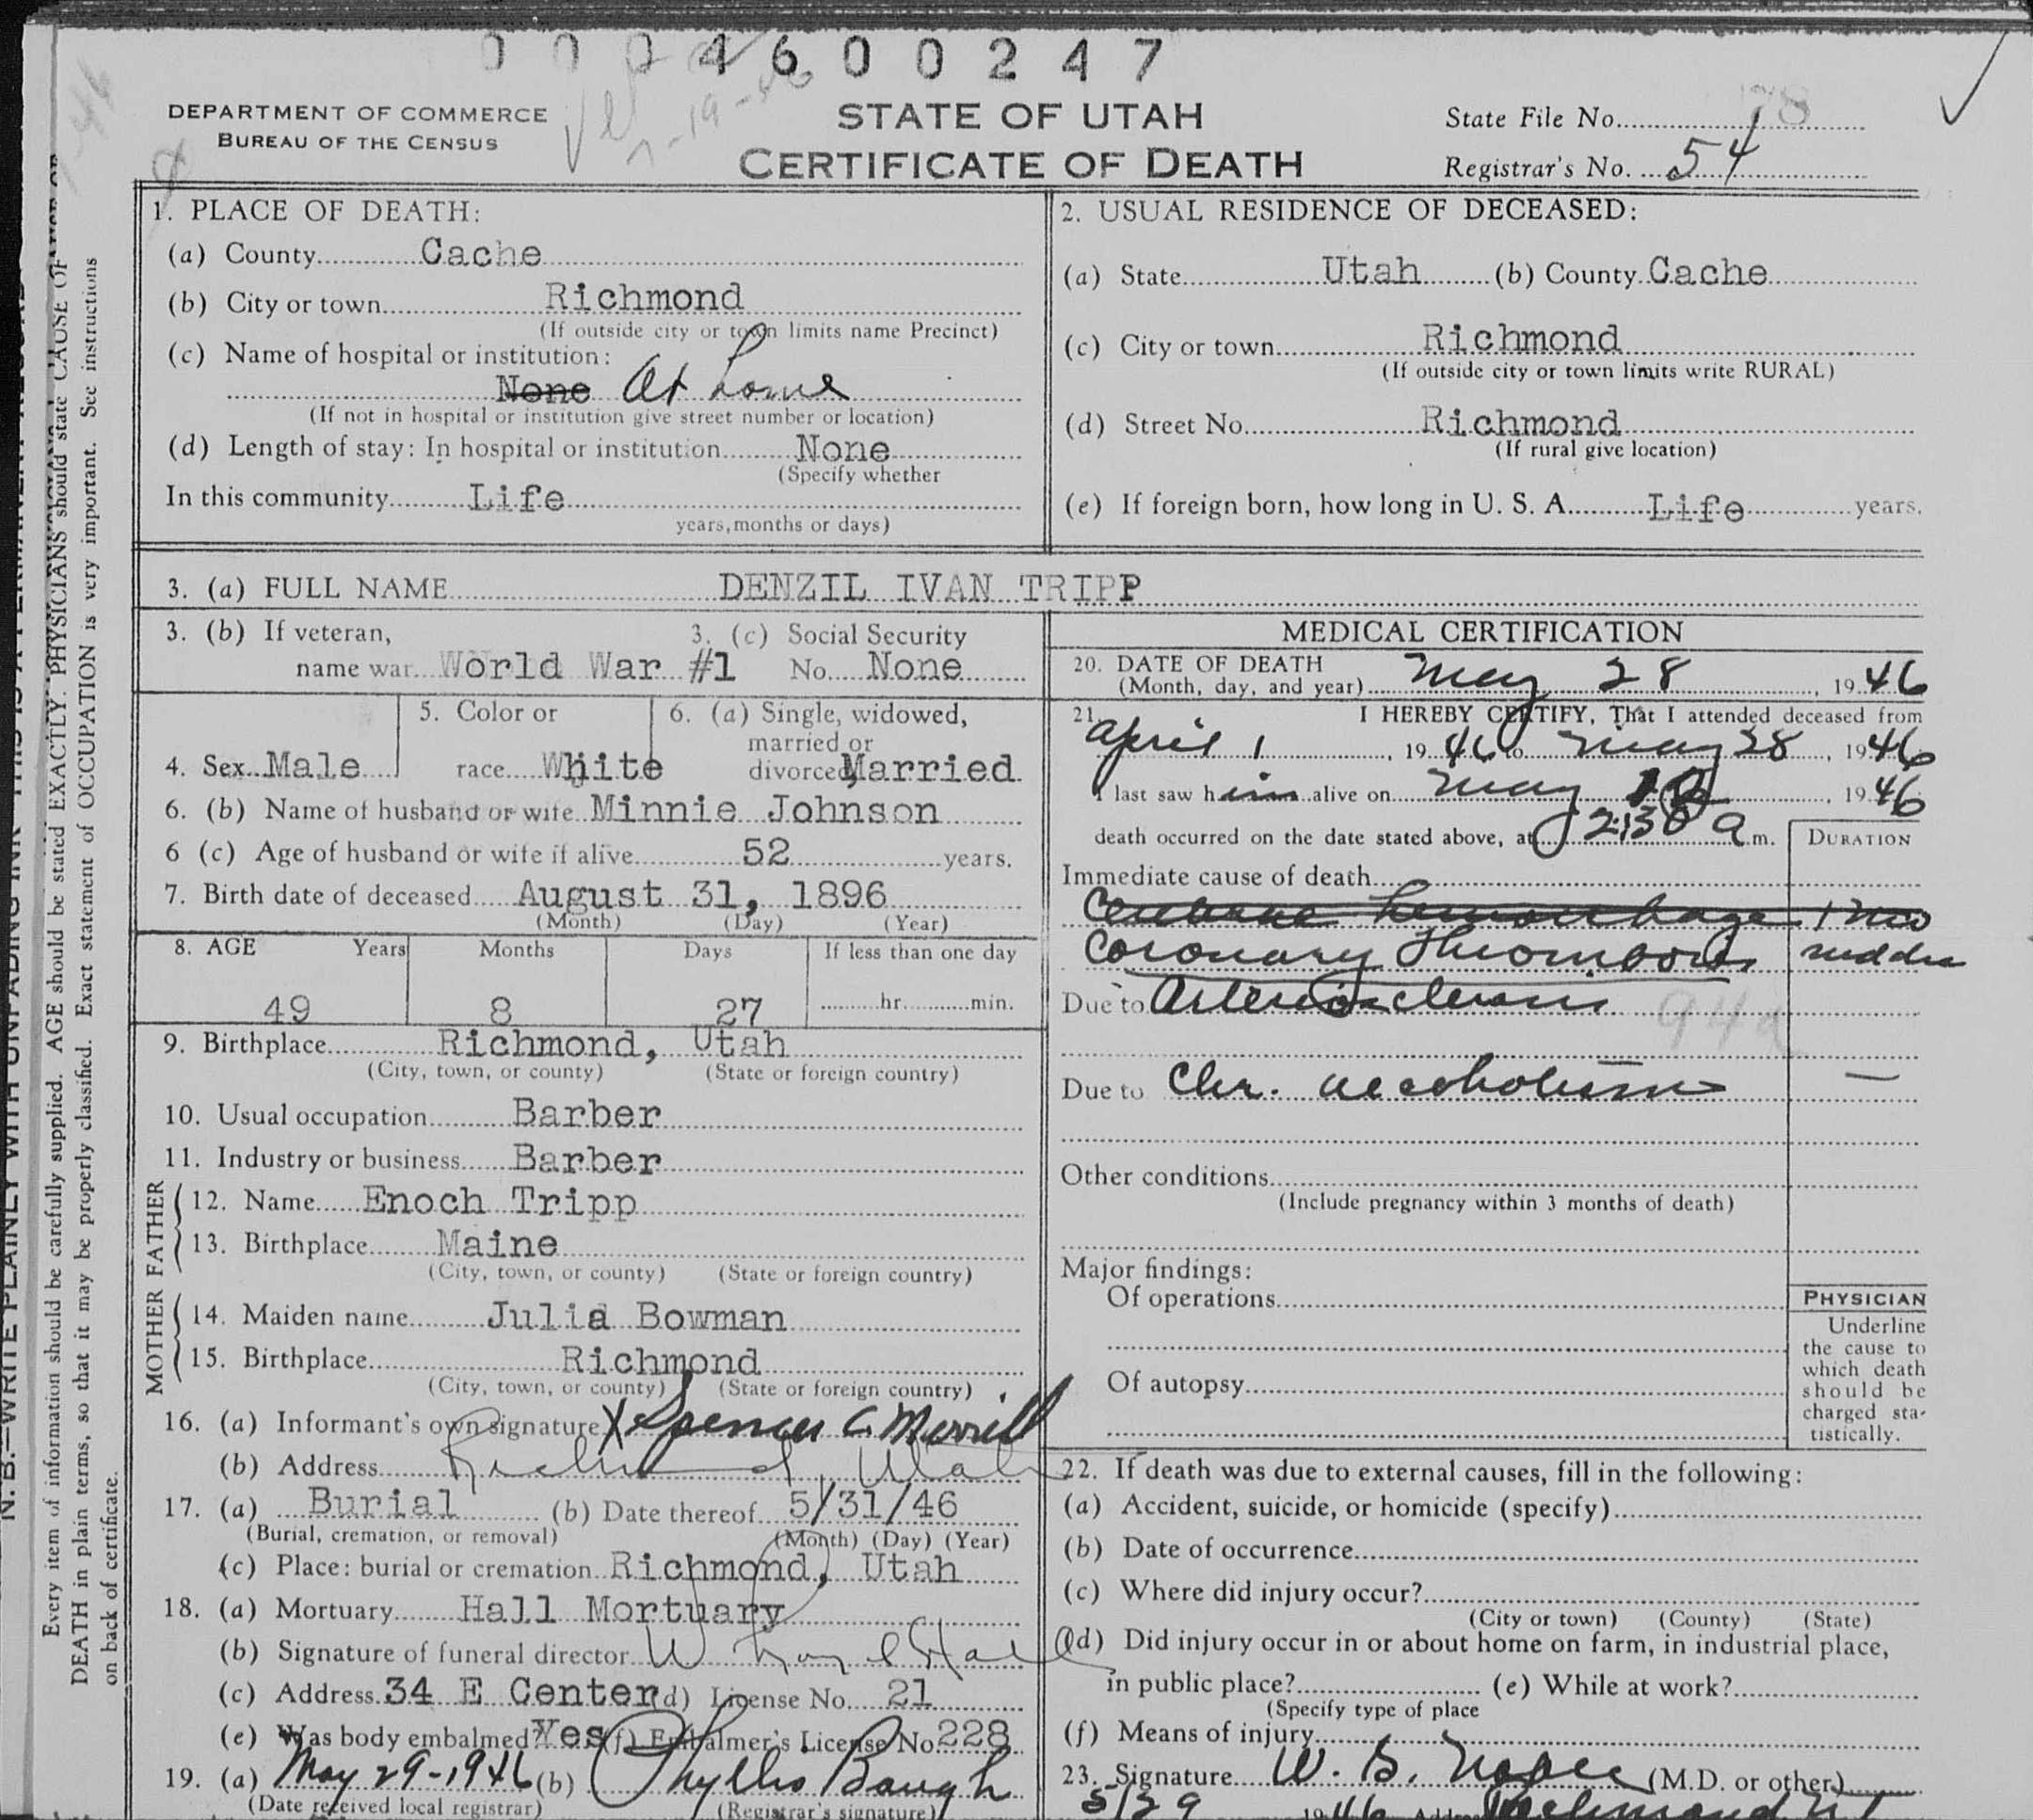 0004600247
DEPARTMENT OF COMMERCE
BUREAU OF THE CENSUS
7-19-46
STATE OF UTAH
CERTIFICATE OF DEATH
State File No. 178
Registrar's No. 54
1. PLACE OF DEATH:
(a) County Cache
(b) City or town Richmond
(If outside city or town limits name Precinct)
(c) Name of hospital or institution:
None At home
(If not in hospital or institution give street number or location)
(d) Length of stay: In hospital or institution None
(Specify whether
In this community Life
years, months or days)
2. USUAL RESIDENCE OF DECEASED:
(a) State Utah (b) County Cache
(c) City or town Richmond
(If outside city or town limits write RURAL)
(d) Street No. Richmond
(If rural give location)
(e) If foreign born, how long in U. S. A. Life years.
3. (a) FULL NAME DENZIL IVAN TRIPP
3. (b) If veteran,
name war World War #1
3. (c) Social Security
No. None
4. Sex Male
5. Color or
race White
6. (a) Single, widowed,
married or
divorced, Married
6. (b) Name of husband or wife Minnie Johnson
6 (c) Age of husband or wife if alive 52 years.
7. Birth date of deceased August 31, 1896
(Month) (Day) (Year)
8. AGE Years Months Days If less than one day
49 8 27 hr. min.
9. Birthplace Richmond, Utah
(City, town, or county) (State or foreign country)
10. Usual occupation Barber
11. Industry or business Barber
FATHER
12. Name Enoch Tripp
13. Birthplace Maine
(City, town, or county) (State or foreign country)
MOTHER
14. Maiden name Julia Bowman
15. Birthplace Richmond
(City, town, or county) (State or foreign country)
16. (a) Informant's own signature X Spencer C. Merrill
(b) Address Richmond, Utah
17. (a) Burial (b) Date thereof 5/31/46
(Burial, cremation, or removal) (Month) (Day) (Year)
(c) Place: burial or cremation Richmond, Utah
18. (a) Mortuary Hall Mortuary
(b) Signature of funeral director W Hall
(c) Address 34 E Center (d) License No. 21
(e) Was body embalmed? Yes (f) Embalmer's License No. 228
19. (a) May 29-1946 (b) Phyllis Baugh
(Date received local registrar) (Registrar's signature)
MEDICAL CERTIFICATION
20. DATE OF DEATH
(Month, day, and year) May 28, 1946
21. I HEREBY CERTIFY, That I attended deceased from
April 1, 1946 to May 28, 1946
I last saw him alive on May, 1946
death occurred on the date stated above, at 2:30 a m.
DURATION
Immediate cause of death
Cerebral hemorrhage 1 mo
Coronary Thrombosis sudden
Due to Arteriosclerosis
94a
Due to Chr. alcoholism —
Other conditions
(Include pregnancy within 3 months of death)
Major findings:
Of operations
Of autopsy
PHYSICIAN
Underline
the cause to
which death
should be
charged sta-
tistically.
22. If death was due to external causes, fill in the following:
(a) Accident, suicide, or homicide (specify)
(b) Date of occurrence
(c) Where did injury occur?
(City or town) (County) (State)
(d) Did injury occur in or about home on farm, in industrial place,
in public place? (e) While at work?
(Specify type of place
(f) Means of injury
23. Signature W. B. (M.D. or other)
5/29 1946 Address Richmond Ut
N. B.—WRITE PLAINLY WITH UNFADING INK—THIS IS A PERMANENT RECORD
Every item of information should be carefully supplied. AGE should be stated EXACTLY. PHYSICIANS should state CAUSE OF
DEATH in plain terms, so that it may be properly classified. Exact statement of OCCUPATION is very important. See instructions
on back of certificate.